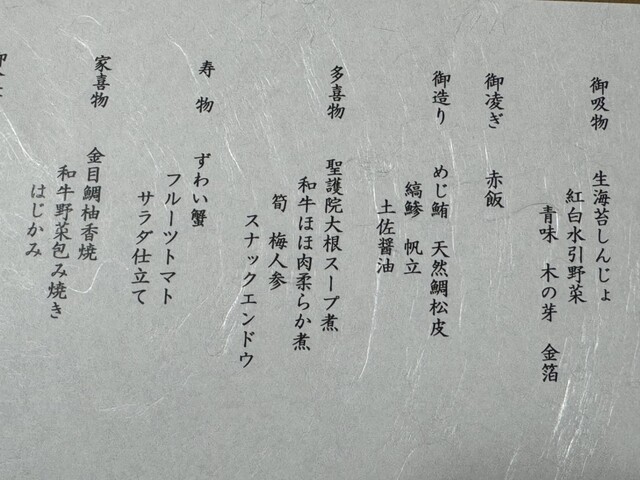 御吸物
生海苔しんじょ
紅白水引野菜
青味　木の芽　金箔
御凌ぎ
赤飯
御造り
めじ鮪　天然鯛松皮
縞鯵　帆立
土佐醤油
多喜物
聖護院大根スープ煮
和牛ほほ肉柔らか煮
筍　梅人参
スナックエンドウ
寿物
ずわい蟹
フルーツトマト
サラダ仕立て
家喜物
金目鯛柚香焼
和牛野菜包み焼き
はじかみ